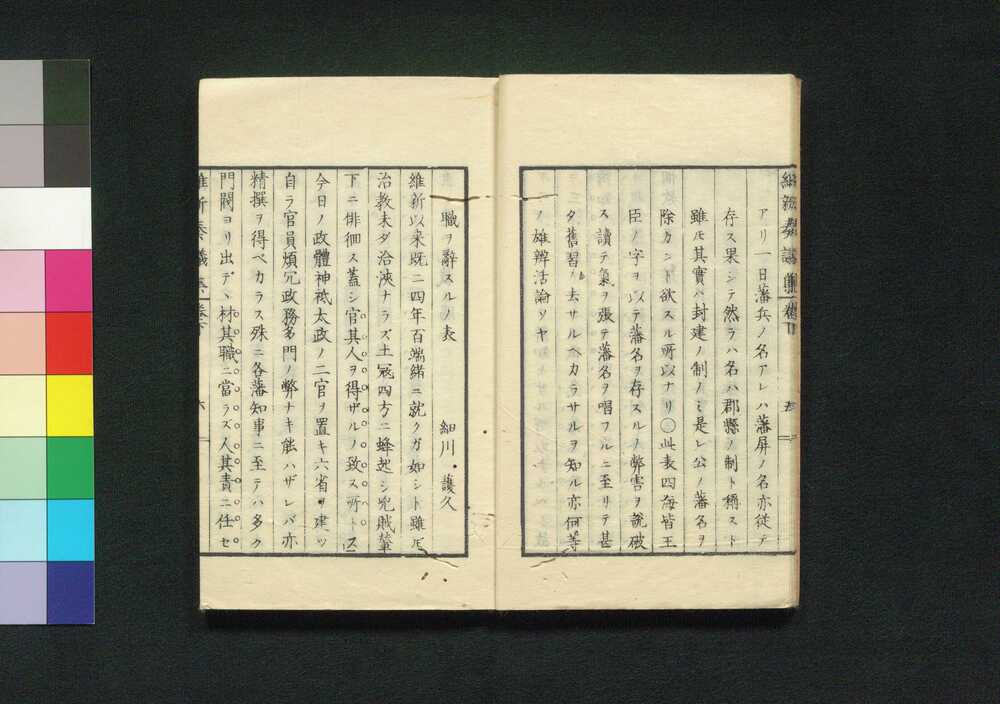 アリ一日藩兵ノ名アレハ藩屏ノ名亦從テ
存ス果シテ然ラハ名ハ郡縣ノ制ト稱スト
雖モ其實ハ封建ノ制ノミ是レ公ノ藩名ヲ
除カント欲スル所以ナリ〇此表四海皆王
臣ノ字ヲ以テ藩名ヲ存スルノ弊害ヲ説破
ス讀テ氣ヲ張テ藩名ヲ唱フルニ至リテ甚
タ舊習ノ去サルヘカラサルヲ知ル亦何等
ノ雄辨活論ソヤ
職ヲ辭スルノ表
細川護久
維新以来既ニ四年百端緒ニ就クガ如シト雖モ
治教未ダ洽浹ナラズ土寇四方ニ蜂起シ兇賊輦
下ニ徘徊ス蓋シ官其人ヲ得ザルノ致ス所トス
今日ノ政體神祇太政ノ二官ヲ置キ六省ヲ建ツ
自ラ官員煩冗政務多門ノ弊ナキ能ハザレバ亦
精撰ヲ得ベカラス殊ニ各藩知事ニ至テハ多ク
門閥ヨリ出デヽ材其職ニ當ラズ人其責ニ任セ